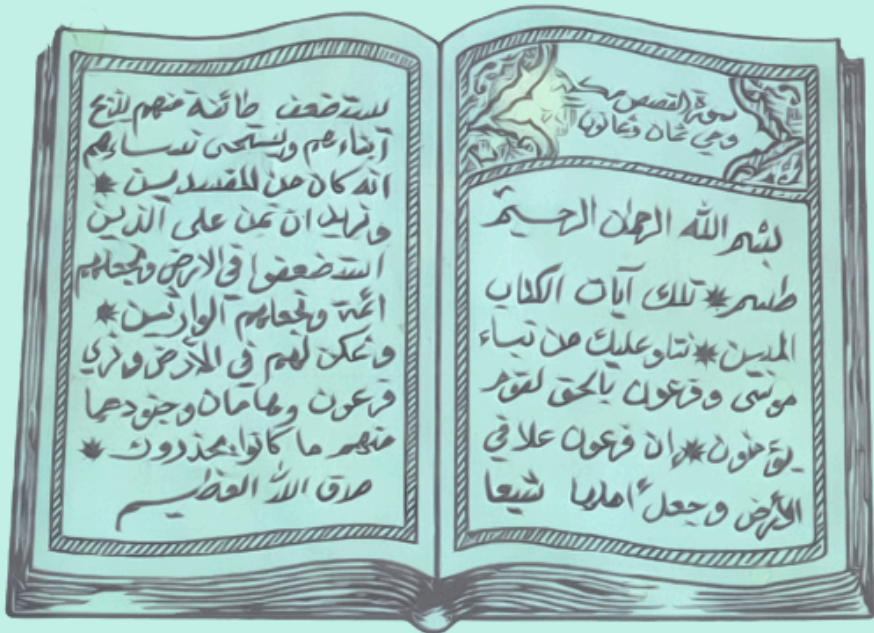 سورة القصص مكية
وهي ثمان وثمانون
بسم الله الرحمن الرحيم
طسم * تلك آيات الكتاب
المبين * نتلو عليك من نباء
موسى وفرعون بالحق لقوم
يؤمنون * ان فرعون علا في
الأرض وجعل أهلها شيعا
يستضعف طائفة منهم يذبح
أبناءهم ويستحى نساءهم
انه كان من المفسدين *
ونريد ان نمن على الذين
استضعفوا فى الارض ونجعلهم
ائمة ونجعلهم الوارثين *
ونمكن لهم فى الأرض ونري
فرعون وهامان وجنودهما
منهم ما كانوا يحذرون *
صدق الله العظيم